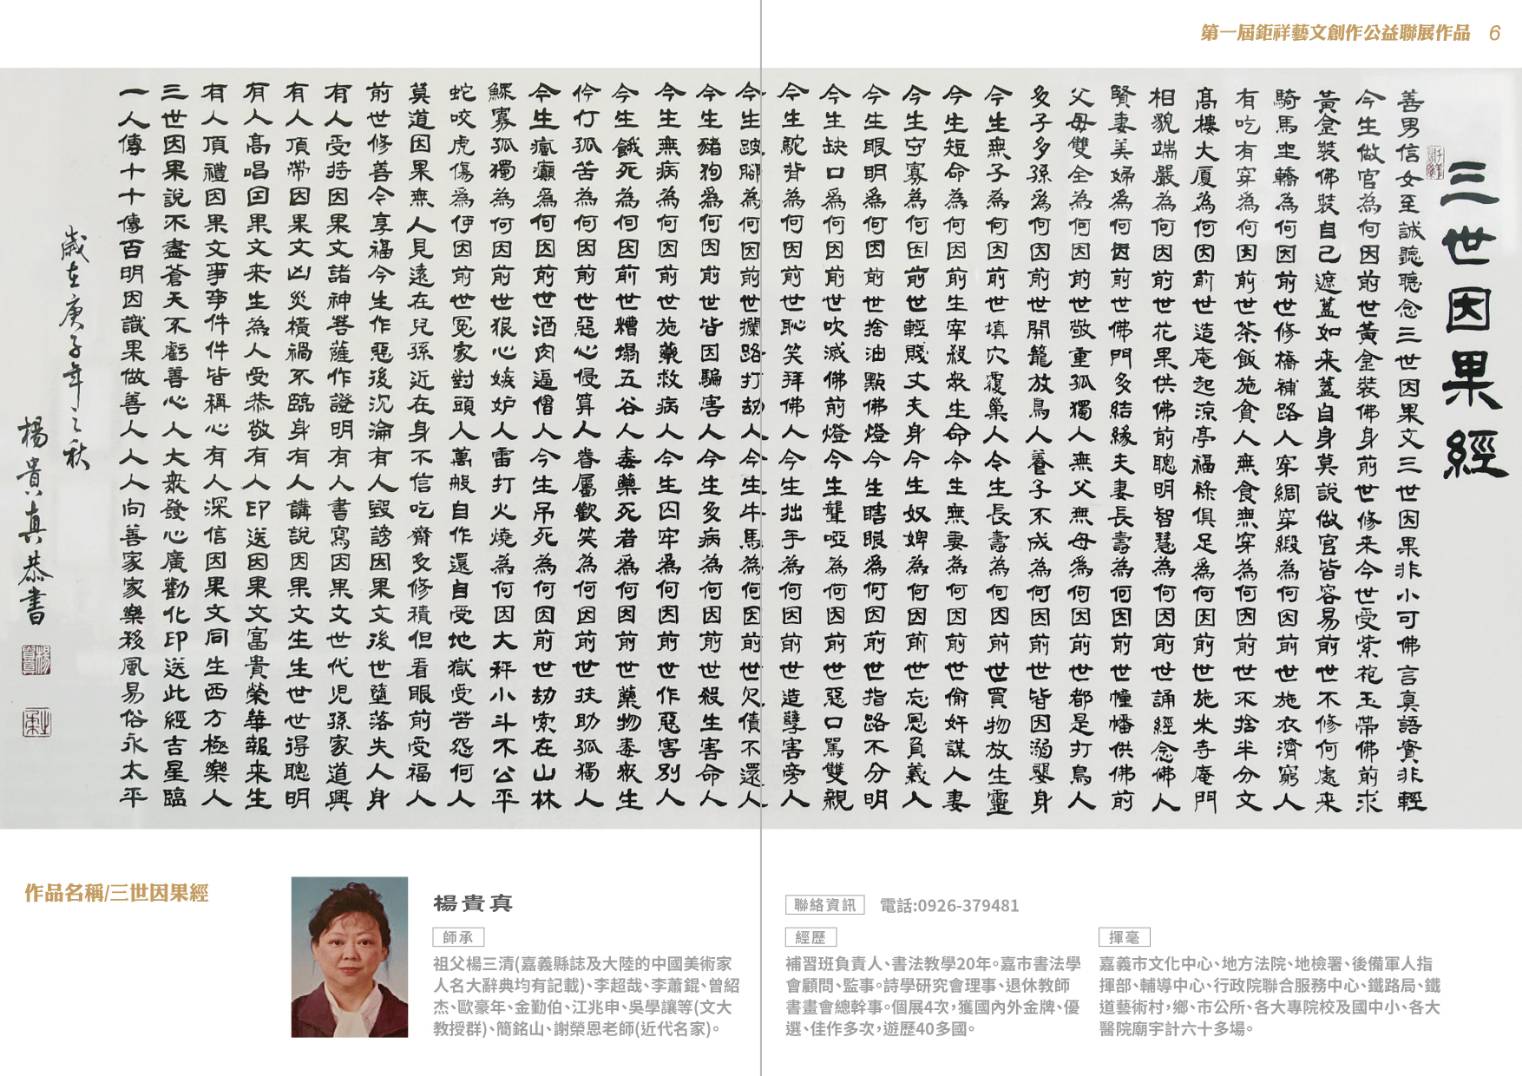 第一屆鉅祥藝文創作公益聯展作品 6
三世因果經
善男信女至誠聽聽念三世因果文三世因果非小可佛言真語實非輕
今生做官為何因前世黃金裝佛身前世修来今世受紫袍玉帶佛前求
黃金裝佛裝自己遮蓋如来蓋自身莫說做官皆容易前世不修何處来
騎馬坐轎為何因前世修橋補路人穿綢穿緞為何因前世施衣濟窮人
有吃有穿為何因前世茶飯施食人無食無穿為何因前世不捨半分文
高樓大厦為何因前世造庵起涼亭福祿俱足為何因前世施米寺庵門
相貌端嚴為何因前世花果供佛前聰明智慧為何因前世誦經念佛人
賢妻美婦為何因前世佛門多結緣夫妻長壽為何因前世幢幡供佛前
父母雙全為何因前世敬重孤獨人無父無母為何因前世都是打鳥人
多子多孫為何因前世開籠放鳥人養子不成為何因前世皆因溺嬰身
今生無子為何因前世填穴覆巢人今生長壽為何因前世買物放生靈
今生短命為何因前生宰殺眾生命今生無妻為何因前世偷奸謀人妻
今生守寡為何因前世輕賤丈夫身今生奴婢為何因前世忘恩負義人
今生眼明為何因前世捨油點佛燈今生瞎眼為何因前世指路不分明
今生缺口為何因前世吹滅佛前燈今生聾啞為何因前世惡口罵雙親
今生駝背為何因前世恥笑拜佛人今生拙手為何因前世造孽害旁人
今生跛腳為何因前世攔路打劫人今生牛馬為何因前世欠債不還人
今生豬狗為何因前世皆因騙害人今生多病為何因前世殺生害命人
今生無病為何因前世施藥救病人今生囚牢為何因前世作惡害別人
今生餓死為何因前世糟塌五谷人毒藥死者為何因前世藥物毒眾生
伶仃孤苦為何因前世惡心侵算人眷屬歡笑為何因前世扶助孤獨人
今生瘋癲為何因前世酒肉逼僧人今生吊死為何因前世劫索在山林
鰥寡孤獨為何因前世狠心嫉妒人雷打火燒為何因大秤小斗不公平
蛇咬虎傷為何因前世冤家對頭人萬般自作還自受地獄受苦怨何人
莫道因果無人見遠在兒孫近在身不信吃齋多修積但看眼前受福人
前世修善今享福今生作惡後沉淪有人毀謗因果文後世墮落失人身
有人受持因果文諸神菩薩作證明有人書寫因果文世代兒孫家道興
有人頂帶因果文凶災橫禍不臨身有人講說因果文生生世世得聰明
有人高唱因果文来生為人受恭敬有人印送因果文富貴榮華報来生
有人頂禮因果文事事件件皆稱心有人深信因果文同生西方極樂人
三世因果說不盡蒼天不虧善心人大眾發心廣勸化印送此經吉星臨
一人傳十十傳百明因識果做善人人人向善家家樂移風易俗永太平
歲在庚子年之秋
楊貴真恭書
作品名稱/三世因果經
楊貴真
師承
祖父楊三清(嘉義縣誌及大陸的中國美術家
人名大辭典均有記載)、李超哉、李蕭錕、曾紹
杰、歐豪年、金勤伯、江兆申、吳學讓等(文大
教授群)、簡銘山、謝榮恩老師(近代名家)。
聯絡資訊 電話:0926-379481
經歷
補習班負責人、書法教學20年。嘉市書法學
會顧問、監事。詩學研究會理事、退休教師
書畫會總幹事。個展4次，獲國內外金牌、優
選、佳作多次，遊歷40多國。
揮毫
嘉義市文化中心、地方法院、地檢署、後備軍人指
揮部、輔導中心、行政院聯合服務中心、鐵路局、鐵
道藝術村，鄉、市公所、各大專院校及國中小、各大
醫院廟宇計六十多場。